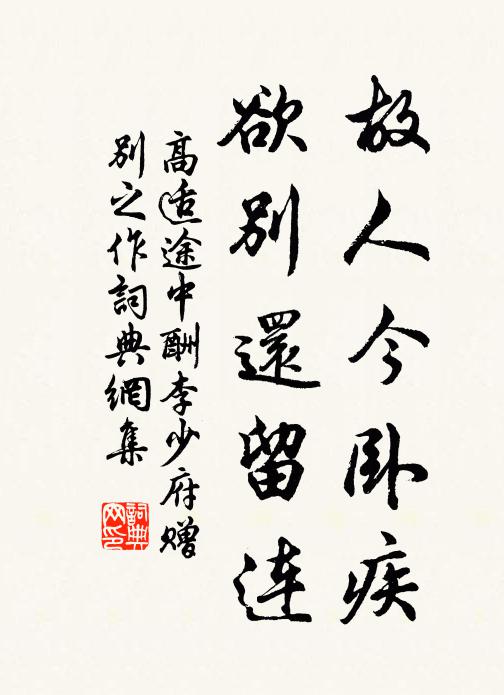 故人今卧疾
欲别還留连
高适途中酬李少府赠
别之作詞典網集
詞典
网印